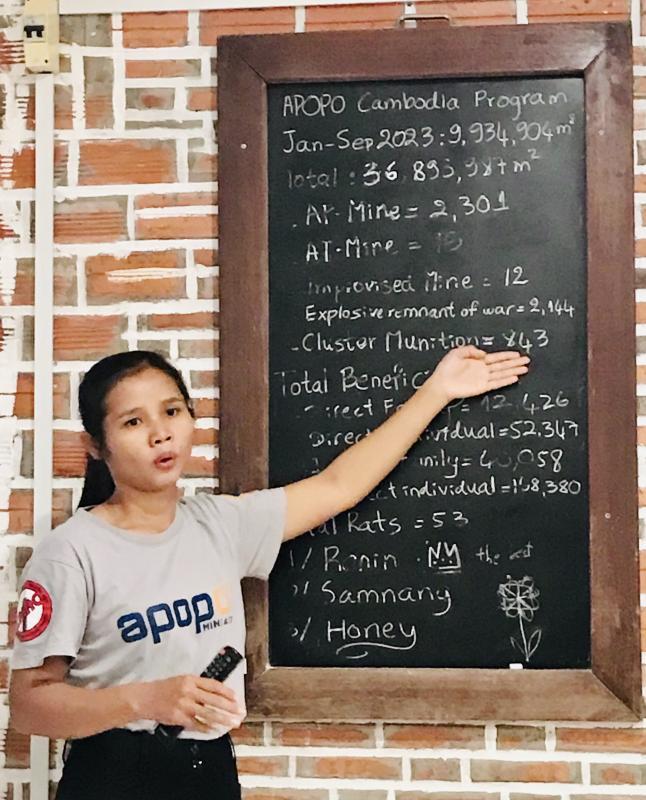 APOPO Cambodia Program
Jan-Sep 2023: 9,934,904m²
Total : 36 895,987m²
- AP-Mine = 2,301
AT-Mine = 15
Improvised Mine = 12
Explosive remnant of war = 2,144
- Cluster Munition = 843
Total Benefici
Direct F = 12.426
Direct individual = 52,347
mily = 40,058
ect individual = 168,380
Total Rats = 53
1/ Ronin NM the best
2/ Samnang
3/ Honey
apopo